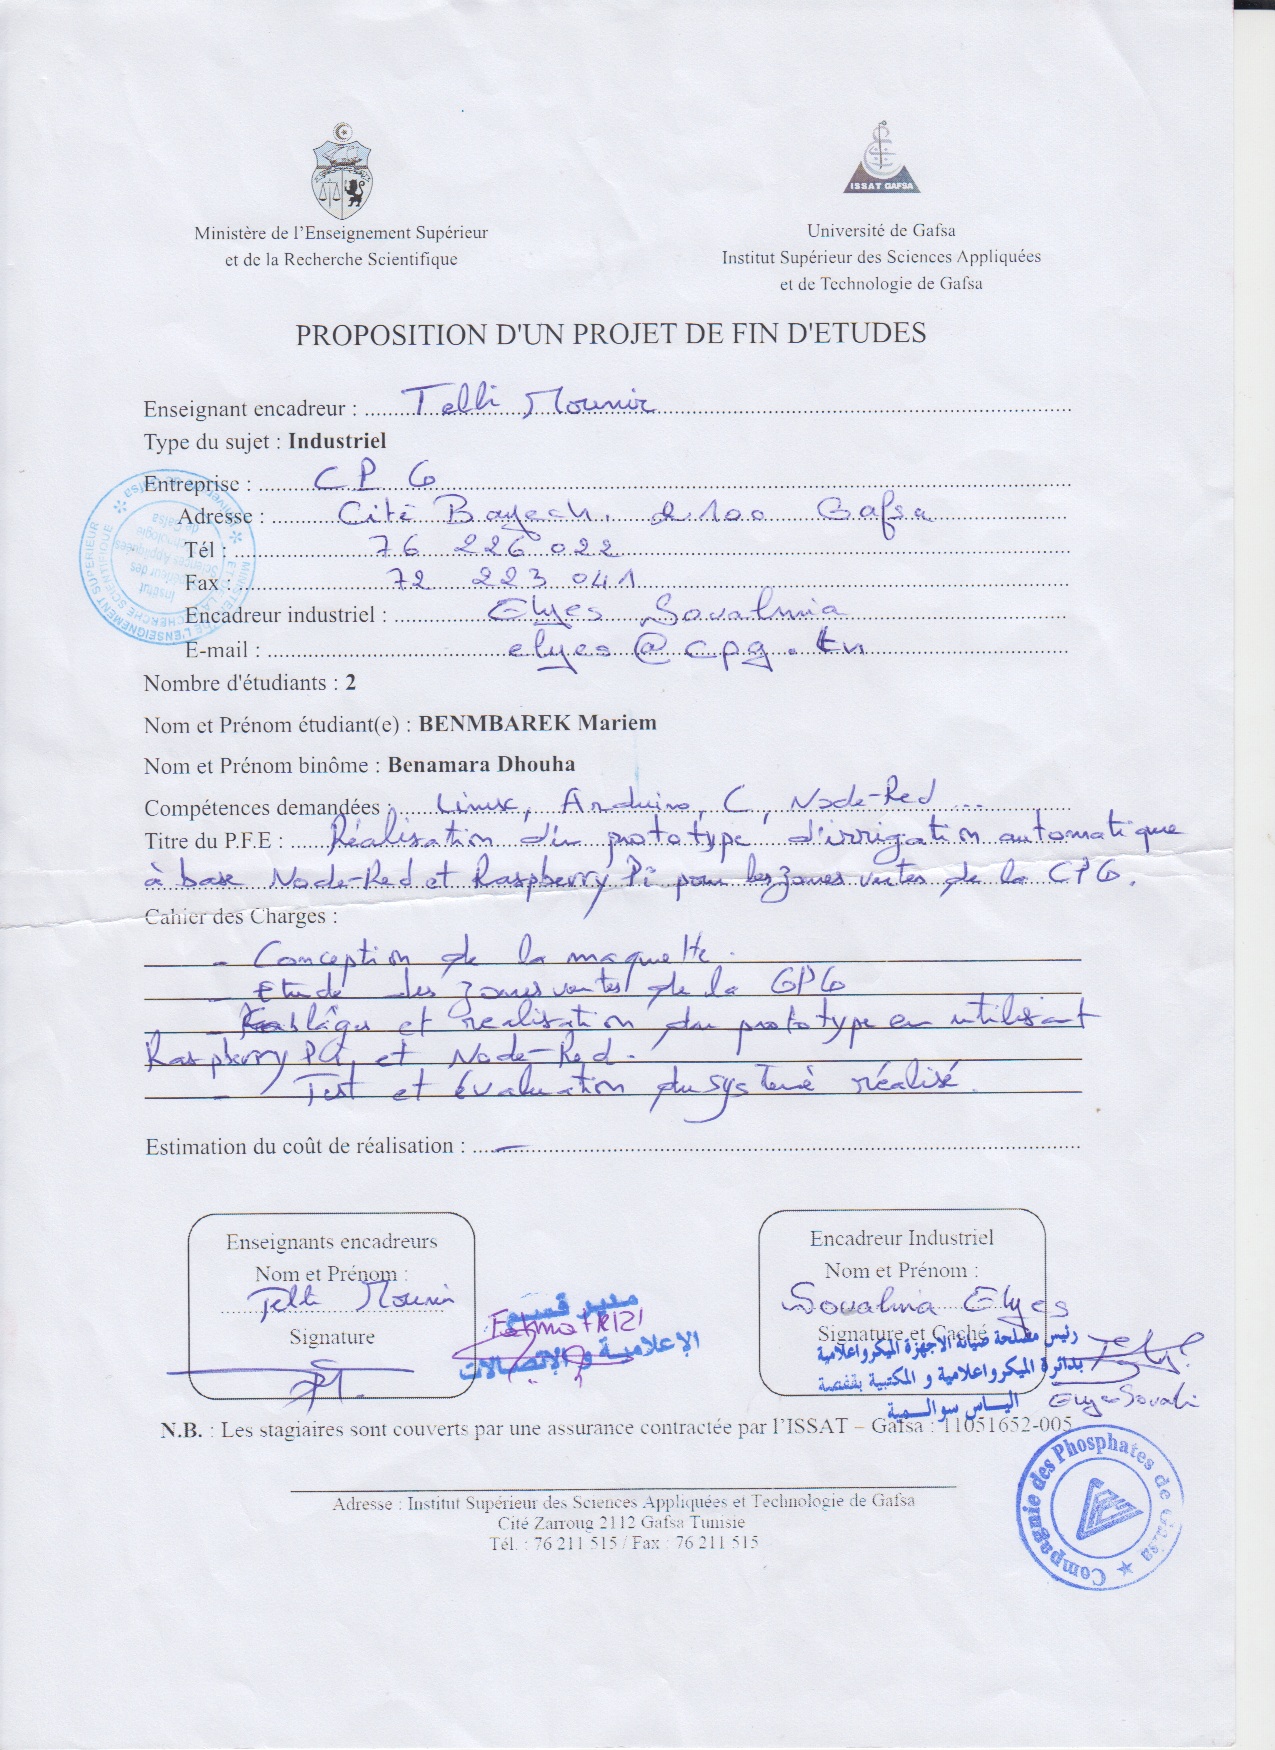 ISSAT GAFSA
Ministère de l'Enseignement Supérieur
et de la Recherche Scientifique
Université de Gafsa
Institut Supérieur des Sciences Appliquées
et de Technologie de Gafsa
PROPOSITION D'UN PROJET DE FIN D'ETUDES
Enseignant encadreur : Telli Mounir
Type du sujet : Industriel
Entreprise : CPG
Adresse : Cité Bayech. 2100 Gafsa
Tél : 76 226 022
Fax : 72 223 041
Encadreur industriel : Elyes Soualmia
E-mail : elyes@cpg.tn
Nombre d'étudiants : 2
Nom et Prénom étudiant(e) : BENMBAREK Mariem
Nom et Prénom binôme : Benamara Dhouha
Compétences demandées : Linux, Arduino, C, Node-Red ...
Titre du P.F.E : Réalisation d'un prototype d'irrigation automatique
à base Node-Red et Raspberry Pi pour les zones vertes de la CPG.
Cahier des Charges :
- Conception de la maquette.
- Etude des zones vertes de la CPG
- et realisation du prototype en utilisant
Raspberry Pi et Node-Red.
- Test et évaluation du système réalisé.
Estimation du coût de réalisation : —
Enseignants encadreurs
Nom et Prénom :
Telli Mounir
Signature
مدير قسم
الإعلامية و الإتصالات
Encadreur Industriel
Nom et Prénom :
Soualmia Elyes
Signature et Caché
رئيس مصلحة صيانة الأجهزة الميكرواعلامية
بدائرة الميكرواعلامية و المكتبية بقفصة
الياس سوالمية
N.B. : Les stagiaires sont couverts par une assurance contractée par l'ISSAT – Gafsa : 11051652-005
Compagnie des Phosphates de Gafsa
Adresse : Institut Supérieur des Sciences Appliquées et Technologie de Gafsa
Cité Zarroug 2112 Gafsa Tunisie
Tél. : 76 211 515 / Fax : 76 211 515